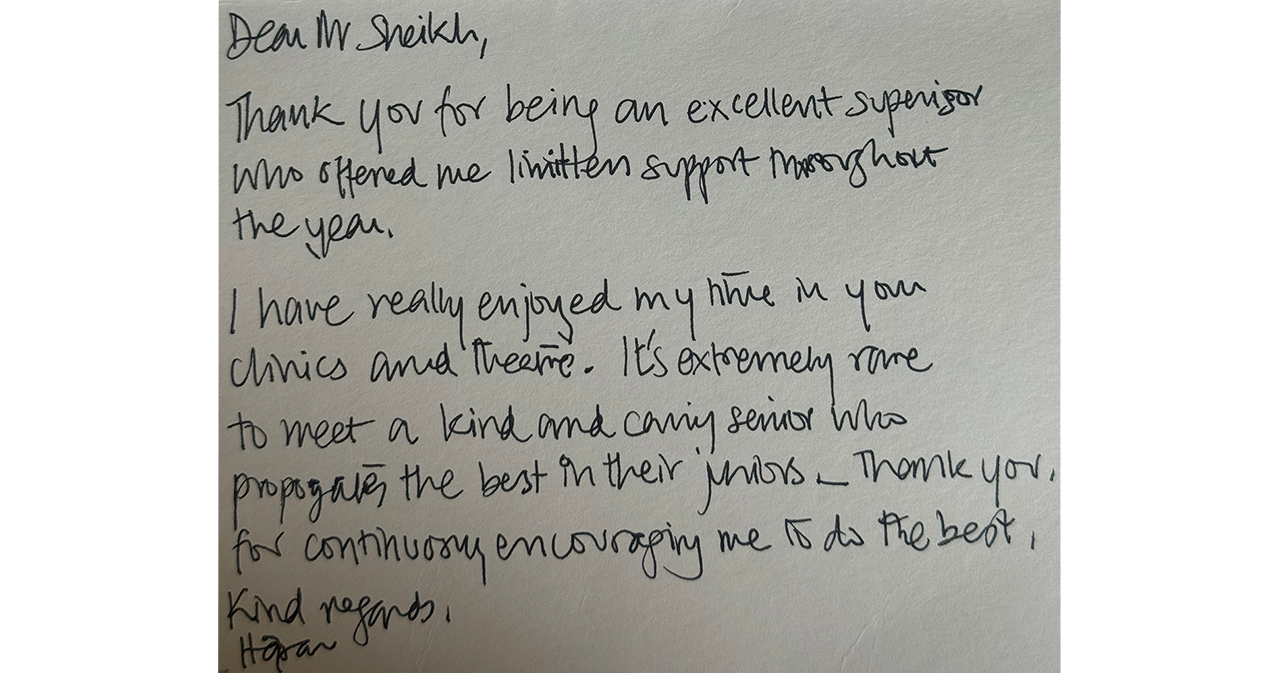 Dear Mr Sheikh,
Thank you for being an excellent supervisor
who offered me support throughout
the year.
I have really enjoyed my time in your
clinics and theatre. It's extremely rare
to meet a kind and caring senior who
propogates the best in their juniors. Thank you.
for continuously encouraging me to do the best.
Kind regards.